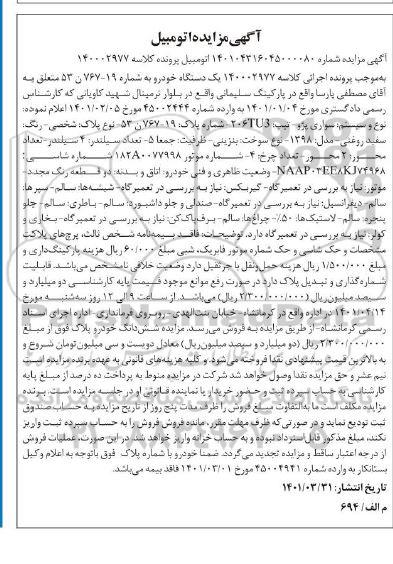 آگهی مزایده اتومبیل
آگهی مزایده شماره ۱۴۰۱۰۴۳۱۶۰۴۵۰۰۰۰۸۰ اتومبیل پرونده کلاسه ۱۴۰۰۰۲۹۷۷
به‌موجب پرونده اجرائی کلاسه ۱۴۰۰۰۲۹۷۷ یک دستگاه خودرو به شماره ۱۹-۷۶۷ ن ۵۳ متعلق به
آقای مصطفی پارسا واقع در پارکینگ سلیمانی واقع در بلوار ترمینال شهید کاویانی که کارشناس
رسمی دادگستری مورخ ۱۴۰۱/۰۱/۰۴ به وارده شماره ۴۵۰۰۲۴۴۴ مورخ ۱۴۰۱/۰۲/۰۵ اعلام نموده:
نوع و سیستم: سواری پژو- تیپ: 206TU3- شماره پلاک: ۱۹-۷۶۷ ن ۵۳- نوع پلاک: شخصی- رنگ:
سفید روغنی- مدل: ۱۳۹۸- نوع سوخت: بنزینی- ظرفیت: جمعا ۵- تعداد سیلندر: ۴ سیلندر- تعداد
محور: ۲ محور- تعداد چرخ: ۴- شماره موتور 182A0077998 شماره شاسی:
NAAP03EE8KJ74968- وضعیت ظاهری و فنی خودرو: اتاق و بدنه: دو قطعه رنگ مجدد-
موتور: نیاز به بررسی در تعمیرگاه- گیربکس: نیاز به بررسی در تعمیرگاه- شیشه‌ها: سالم- سپرها:
سالم- دیفرانسیل: نیاز به بررسی در تعمیرگاه- صندلی و جلو داشبورد: سالم- باطری: سالم- جلو
پنجره: سالم- لاستیک‌ها: ۵۰٪- چراغ‌ها: سالم- برف‌پاک‌کن: نیاز به بررسی در تعمیرگاه- بخاری و
کولر: نیاز به بررسی در تعمیرگاه دارد. توضیحات: فاقد بیمه‌نامه شخص ثالث، پرچ‌های پلاک
مشخصات و حک شاسی و حک شماره موتور فابریک، شبی مبلغ ۶۰/۰۰۰ ریال هزینه پارکینگ‌داری و
مبلغ ۱/۵۰۰/۰۰۰ ریال هزینه حمل‌ونقل با جرثقیل دارد وضعیت خلافی نامشخص می‌باشد. قابلیت
شماره‌گذاری و تبدیل پلاک دارد در صورت رفع موانع موجود قیمت پایه کارشناسی دو میلیارد و
سیصد میلیون ریال (۲/۳۰۰/۰۰۰/۰۰۰ ریال) می‌باشد. از ساعت ۹ الی ۱۲ روز سه‌شنبه مورخ
۱۴۰۱/۰۴/۱۴ در اداره واقع در کرمانشاه- خیابان بنت‌الهدی- روبروی فرمانداری- اداره اجرای اسناد
رسمی کرمانشاه- از طریق مزایده به فروش می‌رسد. مزایده شش‌دانگ خودرو پلاک فوق از مبلغ
۲/۳۰۰/۰۰۰/۰۰۰ ریال (دو میلیارد و سیصد میلیون ریال) معادل دویست و سی میلیون تومان شروع و
به بالاترین قیمت پیشنهادی نقدا فروخته می‌شود. و کلیه هزینه‌های قانونی به عهده برنده مزایده است
نیم عشر و حق مزایده نقدا وصول خواهد شد شرکت در مزایده منوط به پرداخت ده درصد از مبلغ پایه
کارشناسی به حساب سپرده ثبت و حضور خریدار یا نماینده قانونی او در جلسه مزایده است. برنده
مزایده مکلف است مابه‌التفاوت مبلغ فروش را ظرف مدت پنج روز از تاریخ مزایده به حساب صندوق
ثبت تودیع نماید و در صورتی‌که ظرف مهلت مقرر، مانده فروش فروش را به حساب سپرده ثبت واریز
نکند، مبلغ مذکور قابل استرداد نبوده و به حساب خزانه واریز خواهد شد. در این صورت، عملیات فروش
از درجه اعتبار ساقط و مزایده تجدید می‌گردد. ضمنا خودرو با شماره پلاک فوق باتوجه به اعلام وکیل
بستانکار به وارده شماره ۴۵۰۰۴۹۴۱ مورخ ۱۴۰۱/۰۳/۰۱ فاقد بیمه می‌باشد.
تاریخ انتشار: ۱۴۰۱/۰۳/۳۱
م الف/ ۶۹۴